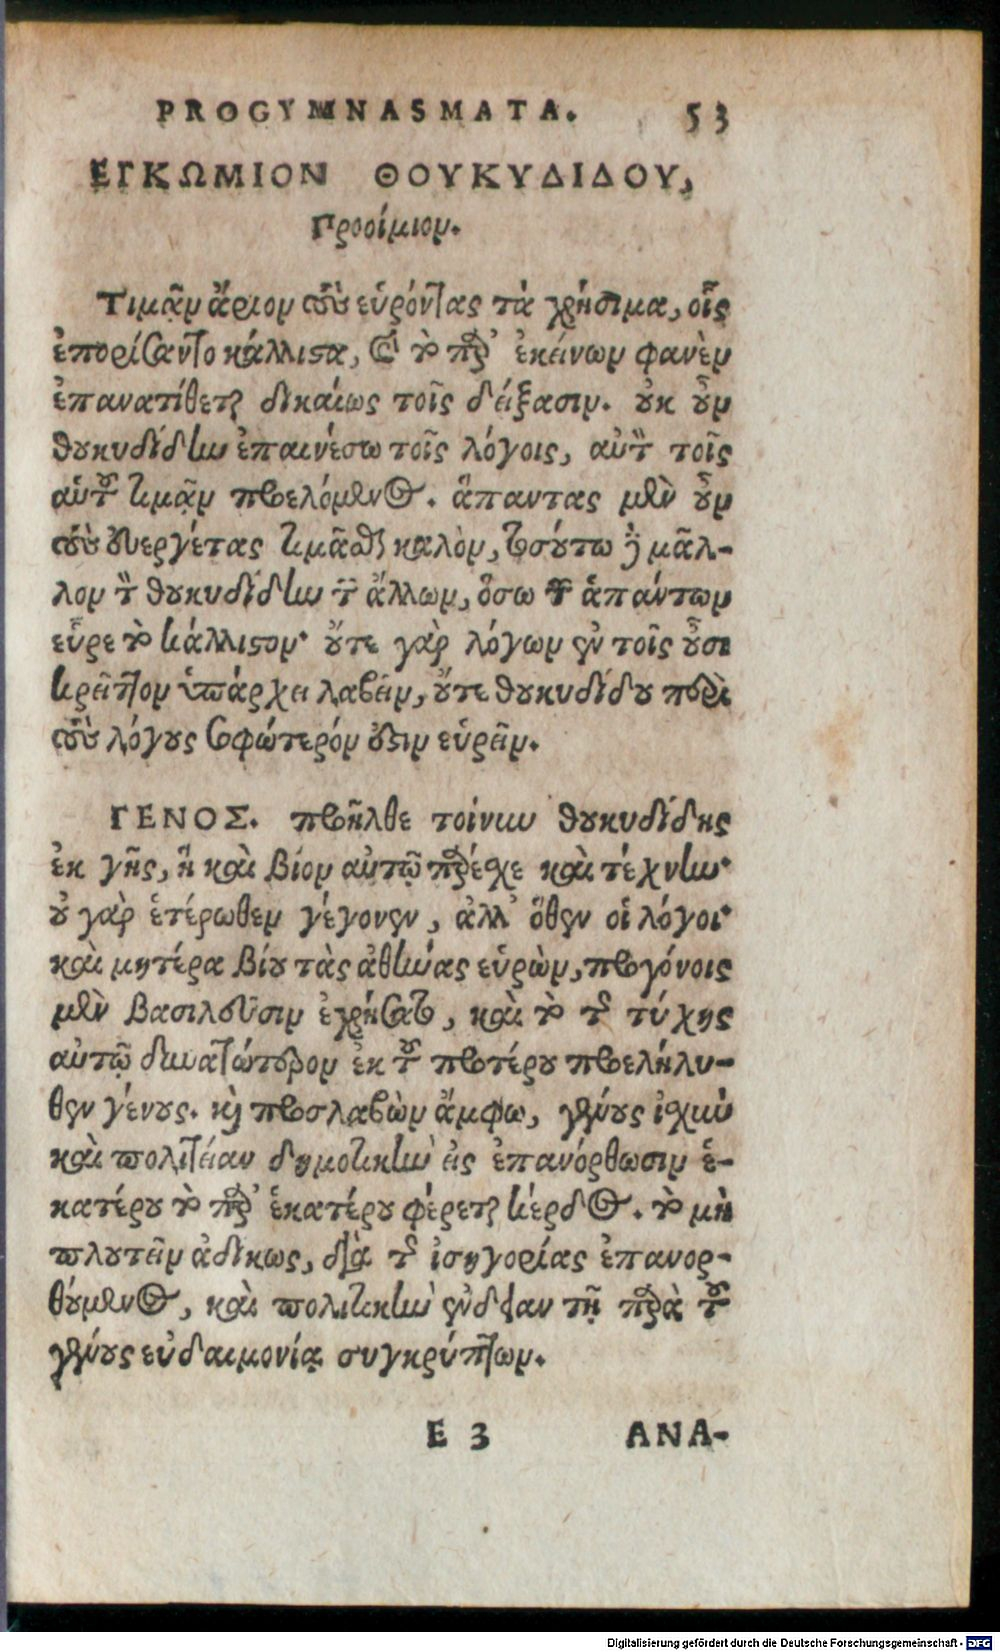 PROGYMNASMATA. 53
ΕΓΚΩΜΙΟΝ ΘΟΥΚΥΔΙΔΟΥ,
Προοίμιον.
Τιμᾷν ἄξιον τοὺς εὑρόντας τὰ χρήσιμα, οἷς
ἐπορίσαντο κάλλιστα, καὶ τὸ παρ' ἐκείνων φανὲν
ἐπανατίθεται δικαίως τοῖς δείξασιν. οὐκ οὖν
θουκυδίδην ἐπαινέσω τοῖς λόγοις, αὐτὸν τοῖς
αὑτοῦ τιμᾷν προελόμενος. ἅπαντας μὲν οὖν
τοὺς εὐεργέτας τιμᾶσθαι καλὸν, τοσούτῳ δὲ μᾶλ-
λον τὸν θουκυδίδην τῶν ἄλλων, ὅσῳ τῶν ἁπάντων
εὗρε τὸ κάλλιστον· οὔτε γὰρ λόγων ἐν τοῖς οὖσι
κρεῖττον ὑπάρχει λαβεῖν, οὔτε θουκυδίδου περὶ
τοὺς λόγους σοφώτερόν ἐστιν εὑρεῖν.
ΓΕΝΟΣ. προῆλθε τοίνυν θουκυδίδης
ἐκ γῆς, ἣ καὶ βίον αὐτῷ παρέσχε καὶ τέχνην·
οὐ γὰρ ἑτέρωθεν γέγονεν, ἀλλ' ὅθεν οἱ λόγοι·
καὶ μητέρα βίου τὰς ἀθήνας εὑρὼν, προγόνοις
μὲν βασιλεῦσιν ἐχρήσατο, καὶ τὸ τῆς τύχης
αὐτῷ δυνατώτερον ἐκ τοῦ προτέρου προελήλυ-
θεν γένους. καὶ προσλαβὼν ἄμφω, γένους ἰσχὺν
καὶ πολιτείαν δημοτικὴν εἰς ἐπανόρθωσιν ἑ-
κατέρου τὸ παρ' ἑκατέρου φέρεται κέρδος. τὸ μὴ
πλουτεῖν ἀδίκως, διὰ τῆς ἰσηγορίας ἐπανορ-
θούμενος, καὶ πολιτικὴν ἔνδειαν τῇ παρὰ τοῦ
γένους εὐδαιμονίᾳ συγκρύπτων.
E 3 ΑΝΑ-
Digitalisierung gefördert durch die Deutsche Forschungsgemeinschaft - DFG